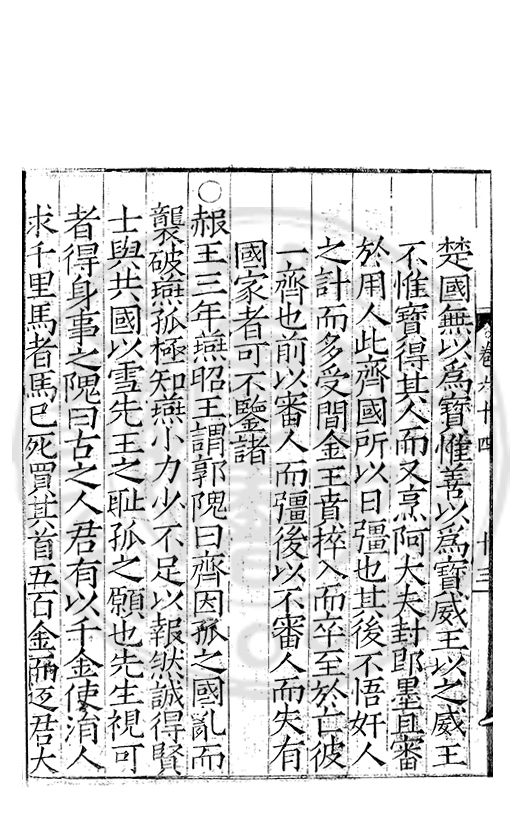 楚國無以爲寶惟善以爲寶威王以之威王
不惟寶得其人而又烹阿大夫封卽墨且審
於用人此齊國所以日彊也其後不悟奸人
之計而多受間金王建捽入而卒至於亡彼
一齊也前以審人而彊後以不審人而失有
國家者可不鑒諸
○赧王三年燕昭王謂郭隗曰齊因孤之國亂而
襲破燕孤極知燕小力少不足以報然誠得賢
士與共國以雪先王之耻孤之願也先生視可
者得身事之隗曰古之人君有以千金使涓人
求千里馬者馬已死買其首五百金而返君大